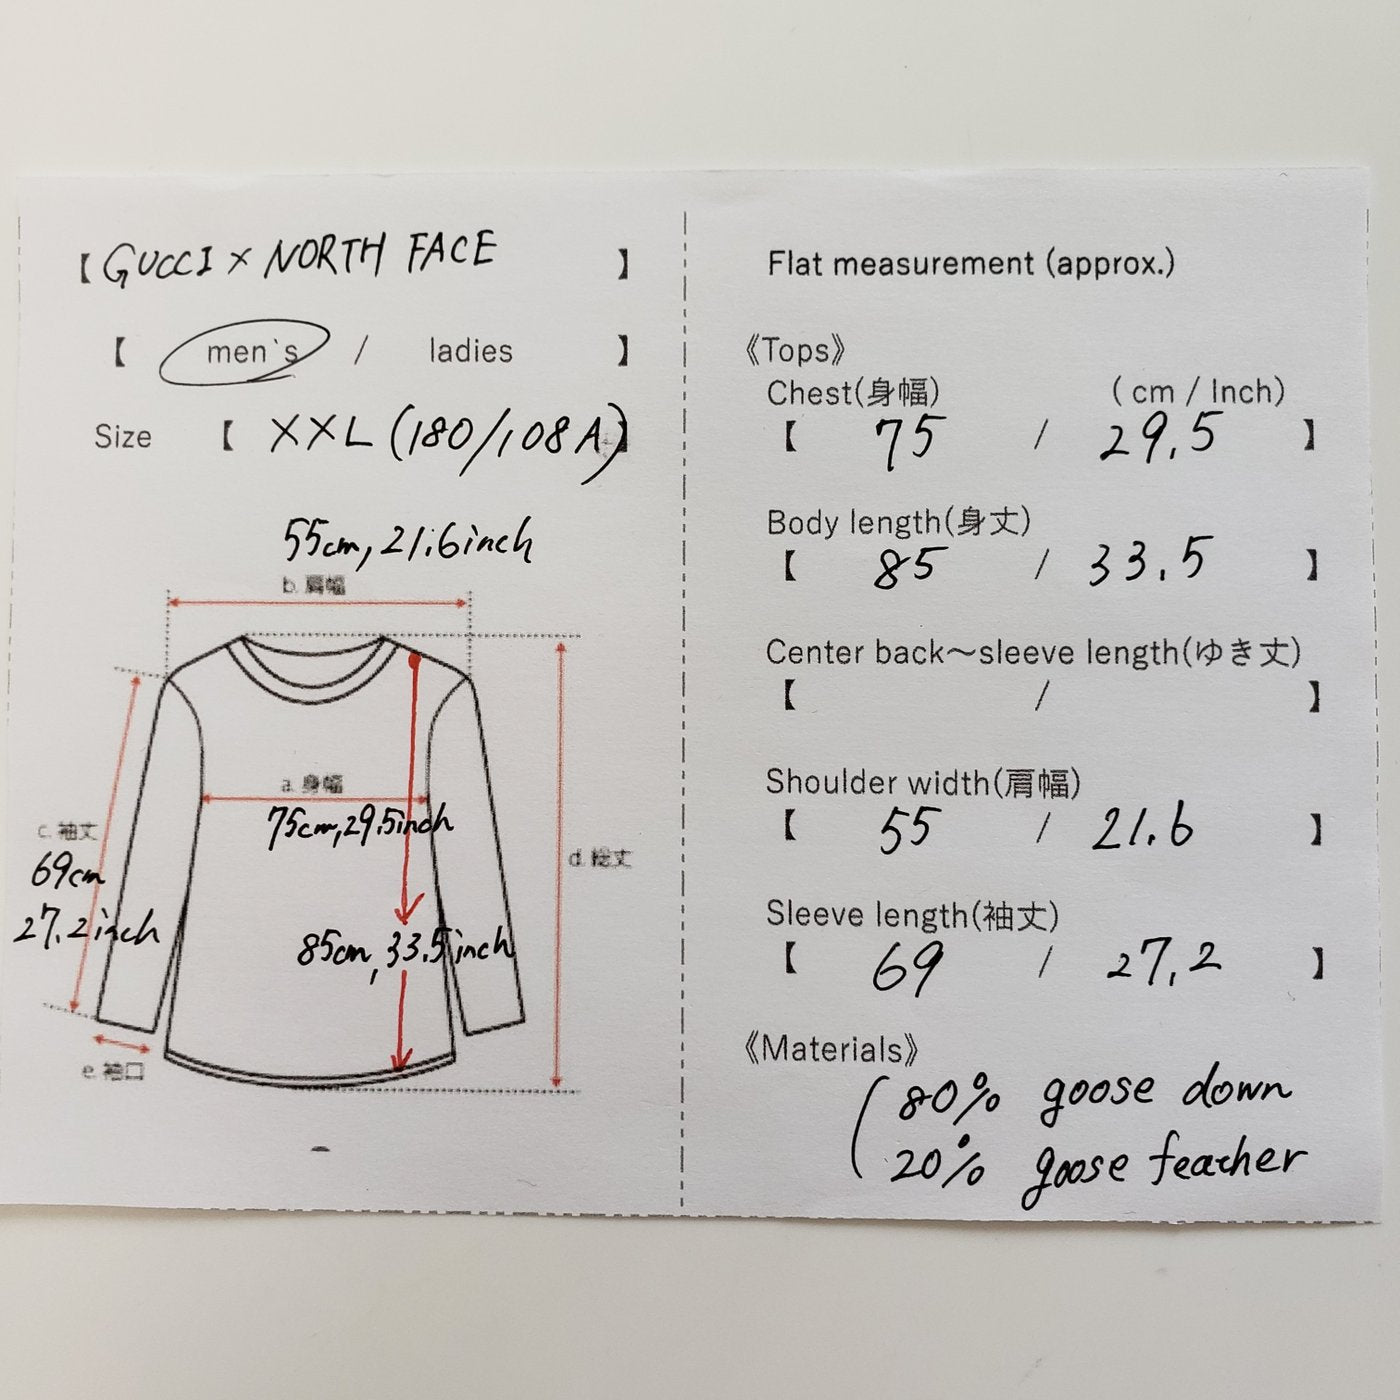 【 GUCCI × NORTH FACE 】
【 men`s / ladies 】
Size 【 XXL (180/108A) 】
55cm, 21.6inch
b. 肩幅
a. 身幅
75cm, 29.5inch
c. 袖丈
69cm
27.2inch
d. 総丈
85cm, 33.5inch
e. 袖口
Flat measurement (approx.)
《Tops》
Chest(身幅) ( cm / Inch)
【 75 / 29.5 】
Body length(身丈)
【 85 / 33.5 】
Center back～sleeve length(ゆき丈)
【 / 】
Shoulder width(肩幅)
【 55 / 21.6 】
Sleeve length(袖丈)
【 69 / 27.2 】
《Materials》
( 80% goose down
20% goose feather